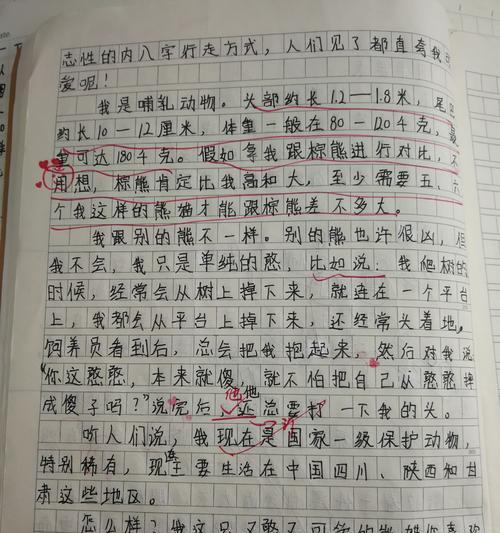 志性的内八字行走方式，人们见了都直夸我可
爱呢！
我是哺乳动物。头部约长1.2—1.8米，尾巴
约长10—12厘米，体重一般在80—120千克，最
重可达180千克。假如拿我跟棕熊进行对比，不
用想，棕熊肯定比我高和大，至少需要五、六
个我这样的熊猫才能跟棕熊差不多大。
我跟别的熊不一样。别的熊也许很凶，但
我不会，我只是单纯的憨，比如说：我爬树的
时候，经常会从树上掉下来，就连在一个平台
上，我都会从平台上掉下来，还经常头着地。
饲养员看到后，总会把我抱起来，然后对我说
“你这憨憨，本来就傻，就不怕把自己从憨憨摔
成傻子吗？”说完后他还总要打一下我的头。
听人们说，我现在是国家一级保护动物，
特别稀有，现主要生活在中国四川、陕西和甘
肃这些地区。
怎么样？我这只又憨又可爱的熊猫你喜欢